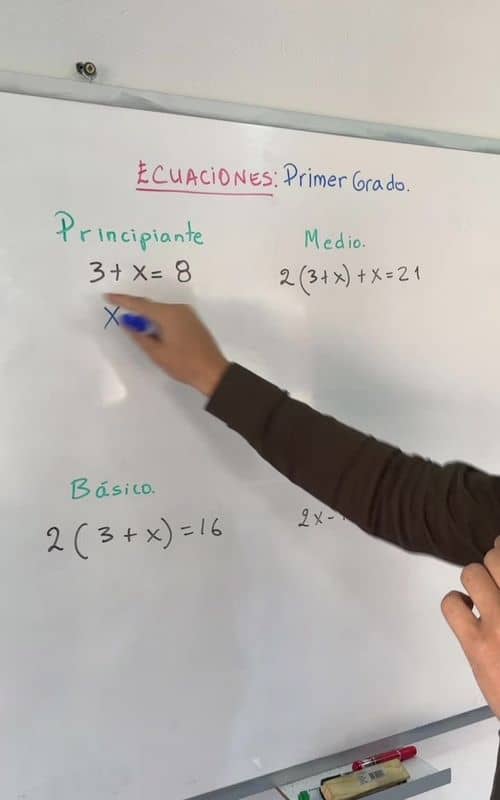 ECUACIONES: Primer Grado.
Principiante
3 + x = 8
x
Medio.
2(3+x) + x = 21
Básico.
2(3 + x) = 16
2x -